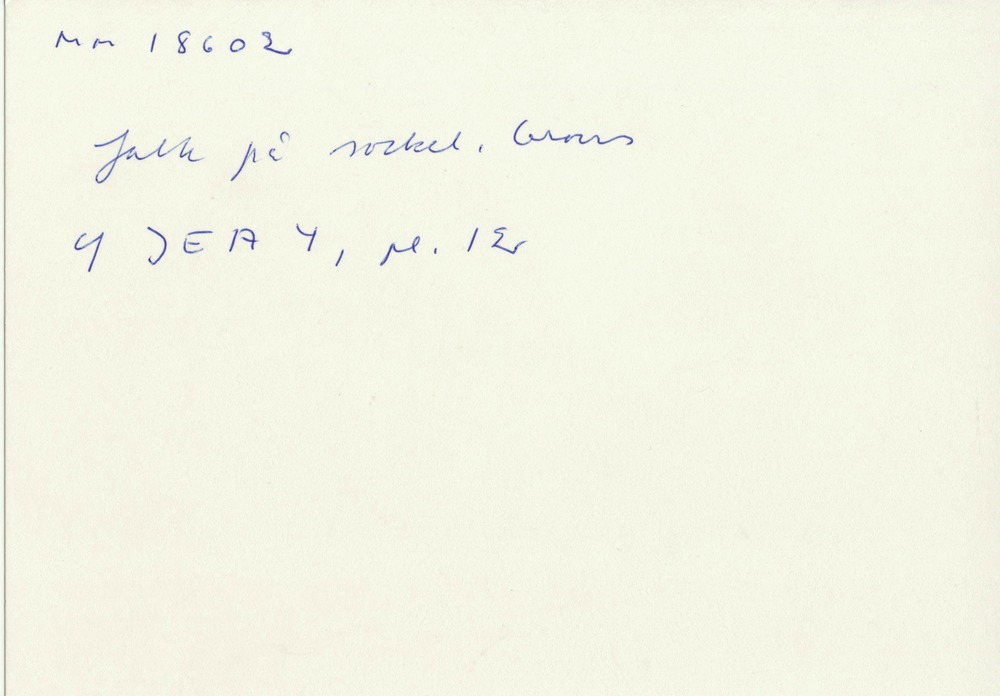 MM 18602
Falk på sockel. Brons
cf JEA 4, pl. 12